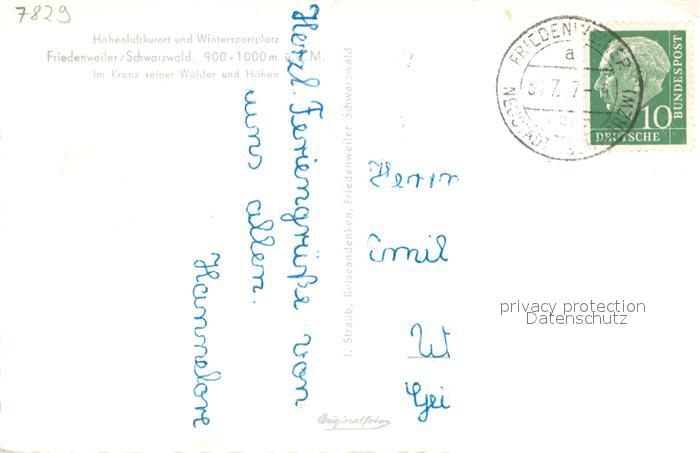 7829
Höhenluftkurort und Wintersportplatz
Friedenweiler/Schwarzwald. 900-1000 m ü. M.
Im Kranz seiner Wälder und Höhen
Herzl. Feriengrüße von
uns allen.
Hannelore
I. Straub, Reiseandenken, Friedenweiler, Schwarzwald
Originalfoto
FRIEDENWEILER
a
NEUSTADT
10
DEUTSCHE
BUNDESPOST
Herrn
Emil
W
Gei
privacy protection
Datenschutz